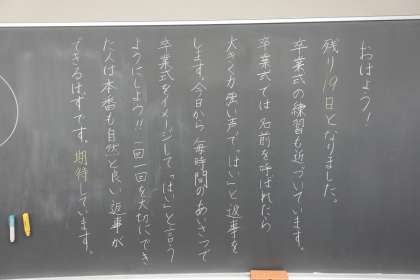 おはよう！
残り19日となりました。
卒業式の練習も近づいています。
卒業式では名前を呼ばれたら
大きく力強い声で「はい」と返事を
します。今日から毎時間のあいさつで
卒業式をイメージして「はい」と言う
ようにしよう!!一回一回を大切にでき
た人は本番も自然と良い返事が
できるはずです。期待しています。